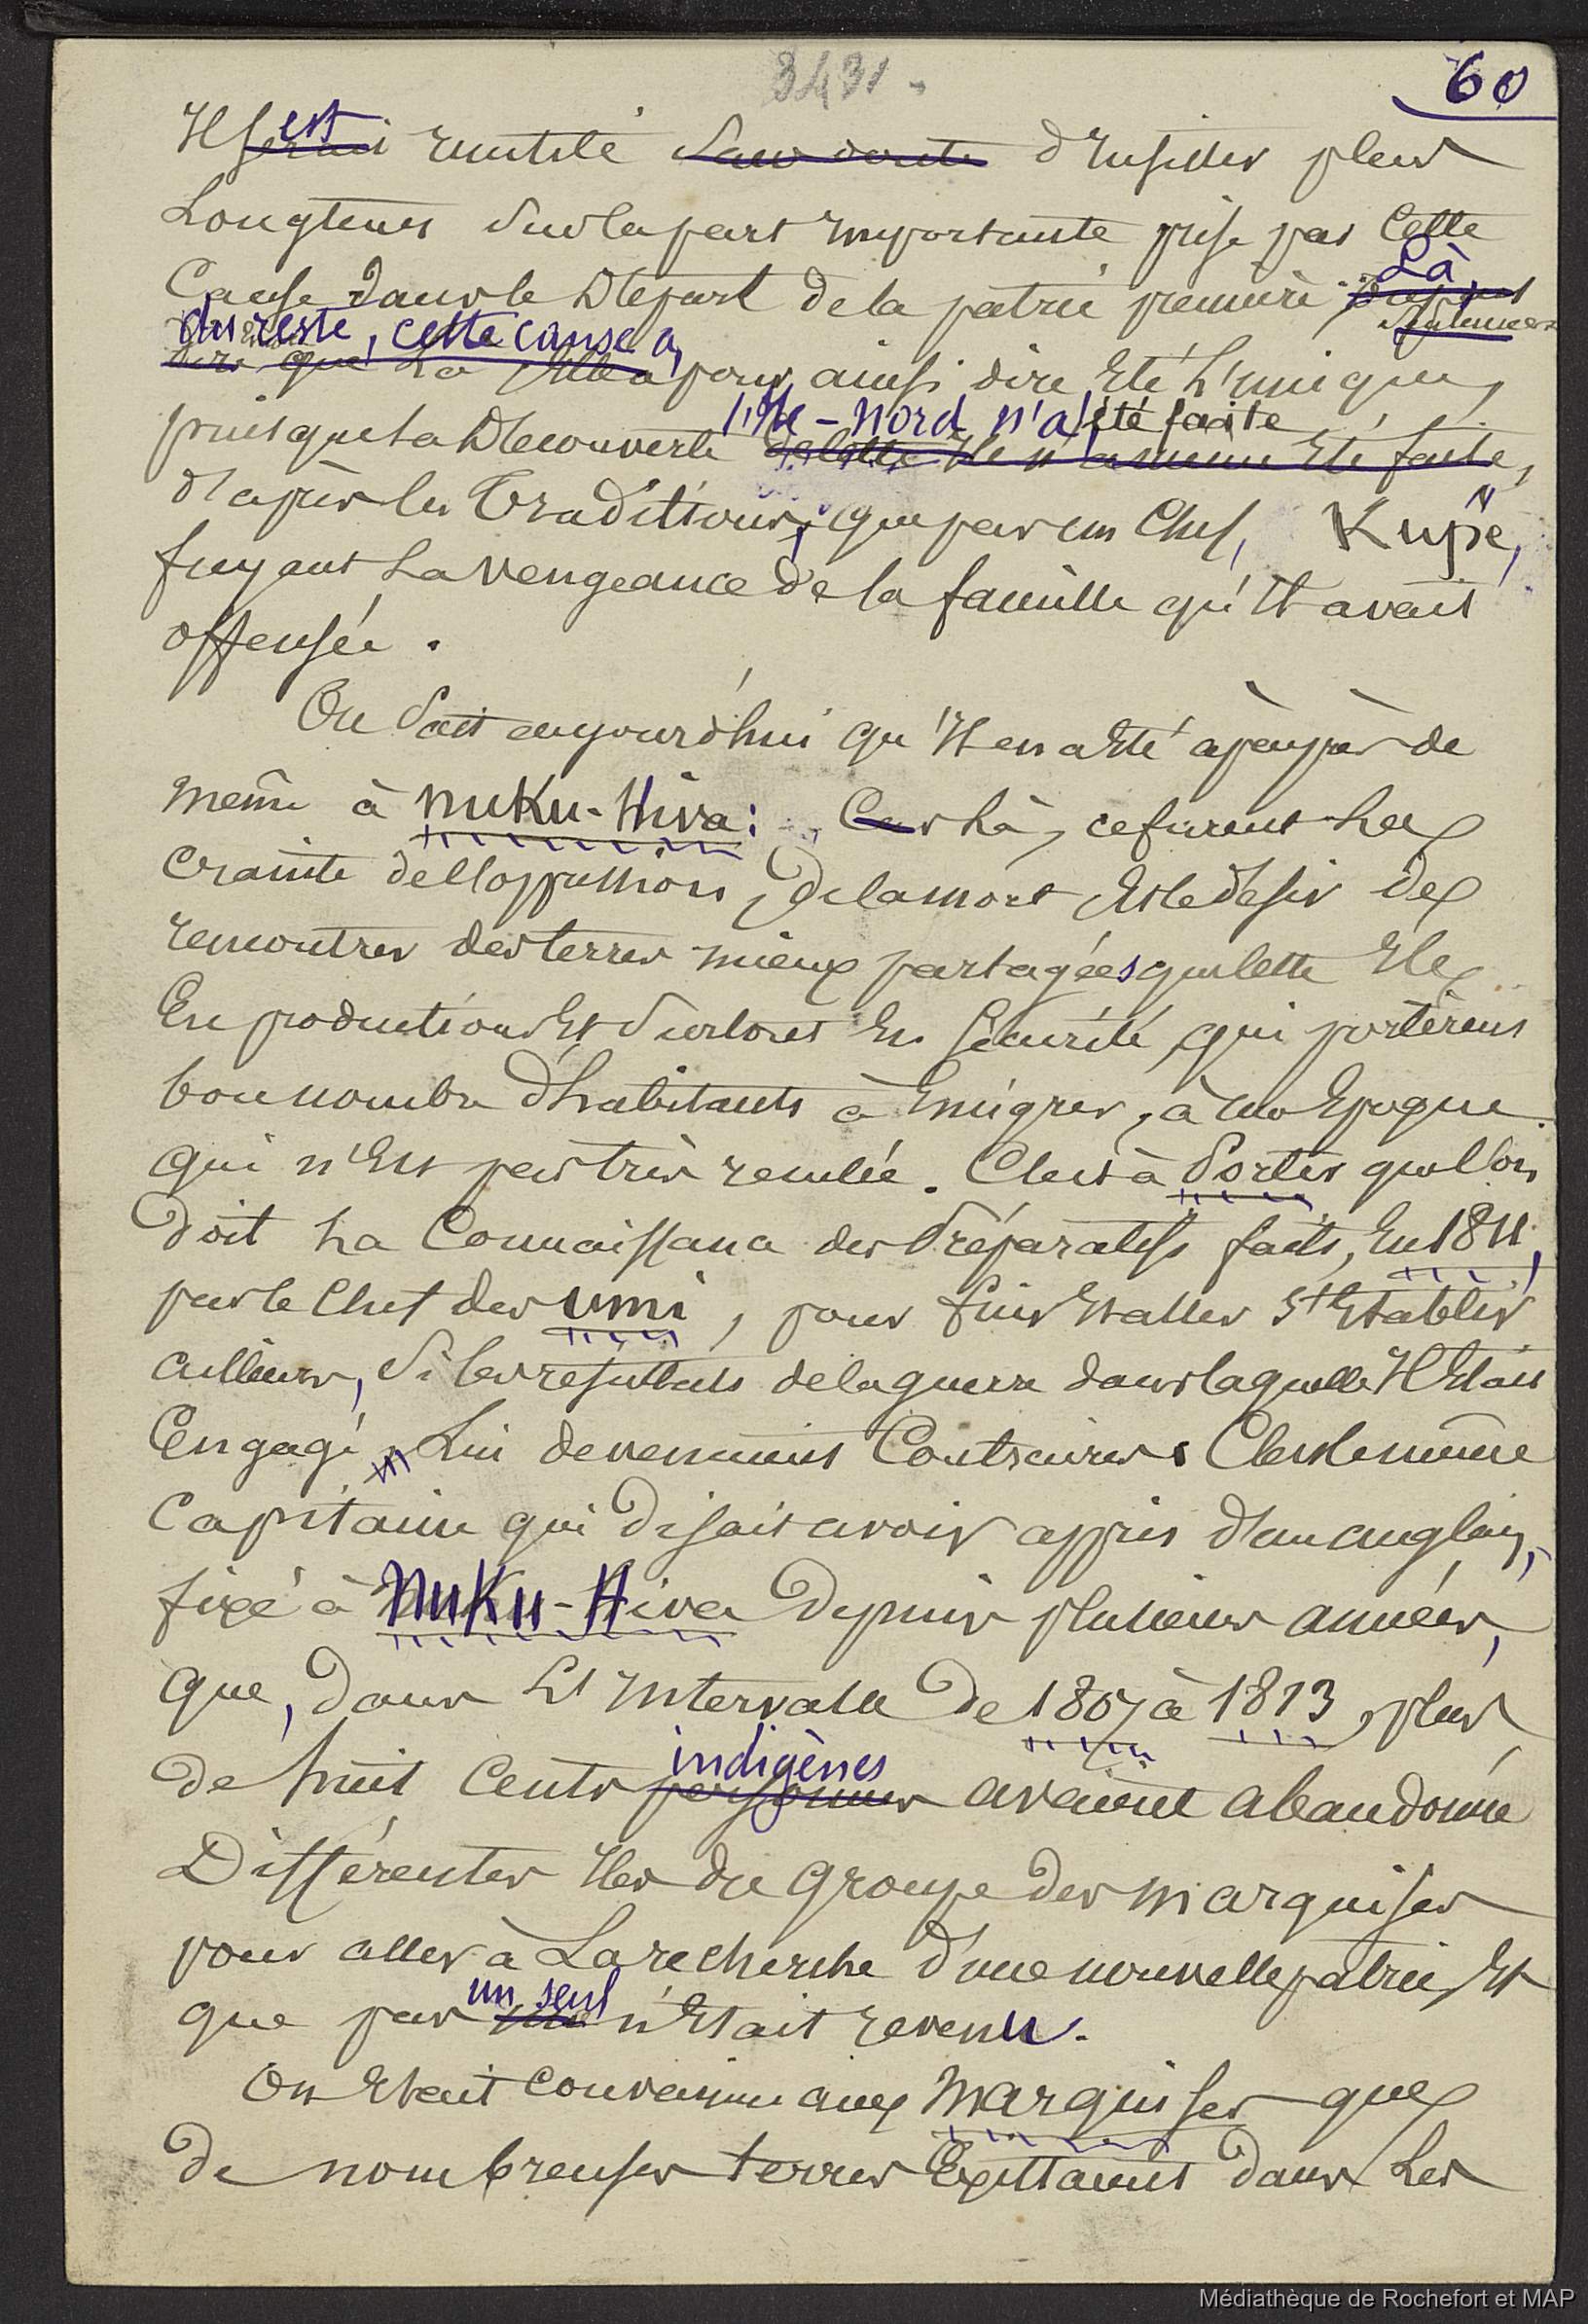 3431.
60
Il serait est inutile sans doute d'insister plus
Longtems sur la part importante prise par cette
Cause dans le Départ de la patrie première. Là
du reste, cette cause a,
dire que La elle a pour ainsi dire été l'unique,
puisque la Découverte de cette île n'a même été faite, l'île-Nord n'a été faite
d'après les Traditions, que par un Chef, Kupe,
fuyant La vengeance de la famille qu'il avait
offensée.
On sait aujourd'hui qu'il en a été à peu près de
même à Nuku-Hiva: Car Là, ce furent La
crainte de l'oppression, de la mort et le désir de
rencontrer des terres mieux partagées que cette île
En productions et surtout en sécurité, qui portèrent
bon nombre d'habitants à émigrer, à une époque
qui n'est pas très reculée. C'est à Porter que l'on
doit La Connaissance des Préparatifs faits, en 1811,
par le Chef des Umi, pour fuir et aller s'établir
ailleurs, si les résultats de la guerre dans laquelle il était
Engagé, Lui devenaient Contraires. C'est le même
Capitaine qui disait avoir appris d'un anglais,
fixé à Nuku-Hiva depuis plusieurs années,
que, dans L'intervalle de 1807 à 1813, plus
de huit cents personnes indigènes avaient abandonné
Différentes îles du Groupe des Marquises
pour aller à La recherche d'une nouvelle patrie, et
que pas un un seul n'était revenu.
On était convaincu aux Marquises que
de nombreuses terres Existaient dans Les
Médiathèque de Rochefort et MAP